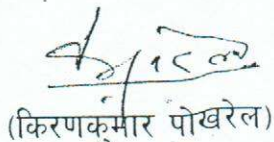 (किरणकुमार पोखरेल)